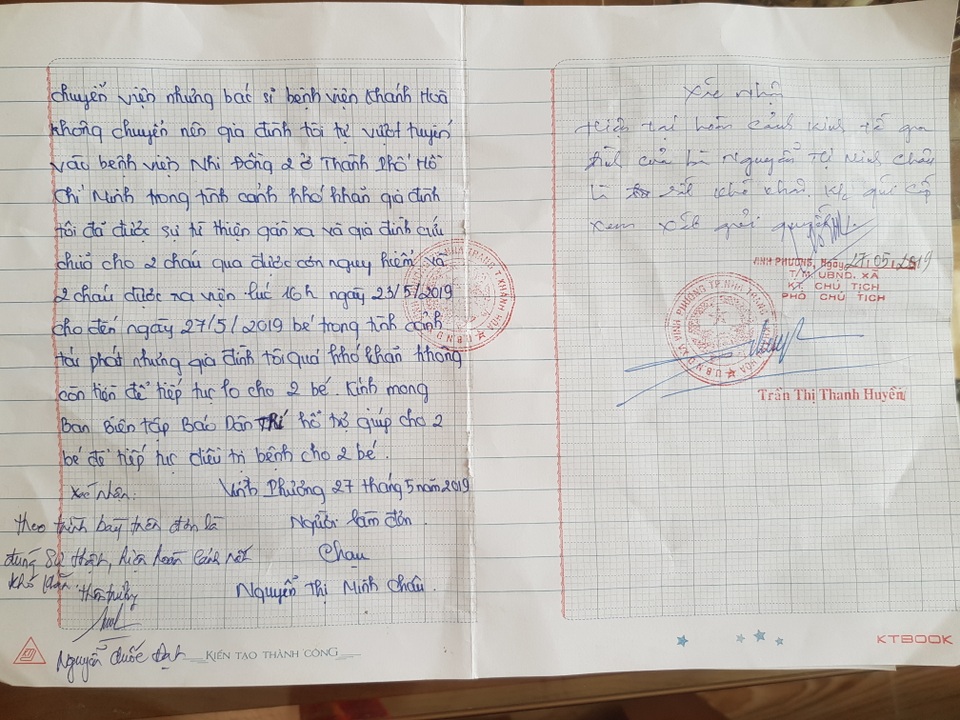 chuyển viện nhưng bác sĩ bệnh viện Khánh Hoà
không chuyển nên gia đình tôi tự vượt tuyến
vào bệnh viện Nhi Đồng 2 ở Thành Phố Hồ
Chí Minh trong tình cảnh khó khăn gia đình
tôi đã được sự từ thiện gần xa và gia đình cứu
chữa cho 2 cháu qua được cơn nguy hiểm và
2 cháu được xa viện lúc 16h ngày 23/5/2019
cho đến ngày 27/5/2019 bé trong tình cảnh
tái phát nhưng gia đình tôi quá khó khăn không
còn tiền để tiếp tục lo cho 2 bé. Kính mong
Ban Biên tập Báo Dân Trí hổ trợ giúp cho 2
bé để tiếp tục điều trị bệnh cho 2 bé.
Vĩnh Phương 27 tháng 5 năm 2019
Người làm đơn
Chau
Nguyễn Thị Minh Châu
Xác nhận
theo trình bày trên đơn là
đúng sự thật, hiện hoàn cảnh rất
khó khăn.
thôn trưởng
Nguyễn Quốc Đạt
KIẾN TẠO THÀNH CÔNG
Xác nhận
Hiện tại hoàn cảnh kinh tế gia
đình của bà Nguyễn Thị Minh Châu
là rất khó khăn. Kg quí cấp
xem xét giải quyết
VĨNH PHƯƠNG, Ngày 27/05/2019
T/M UBND. XÃ
KT. CHỦ TỊCH
PHÓ CHỦ TỊCH
U.B.N.D XÃ VĨNH PHƯƠNG TP.NHA TRANG
Trần Thị Thanh Huyền
KTBOOK